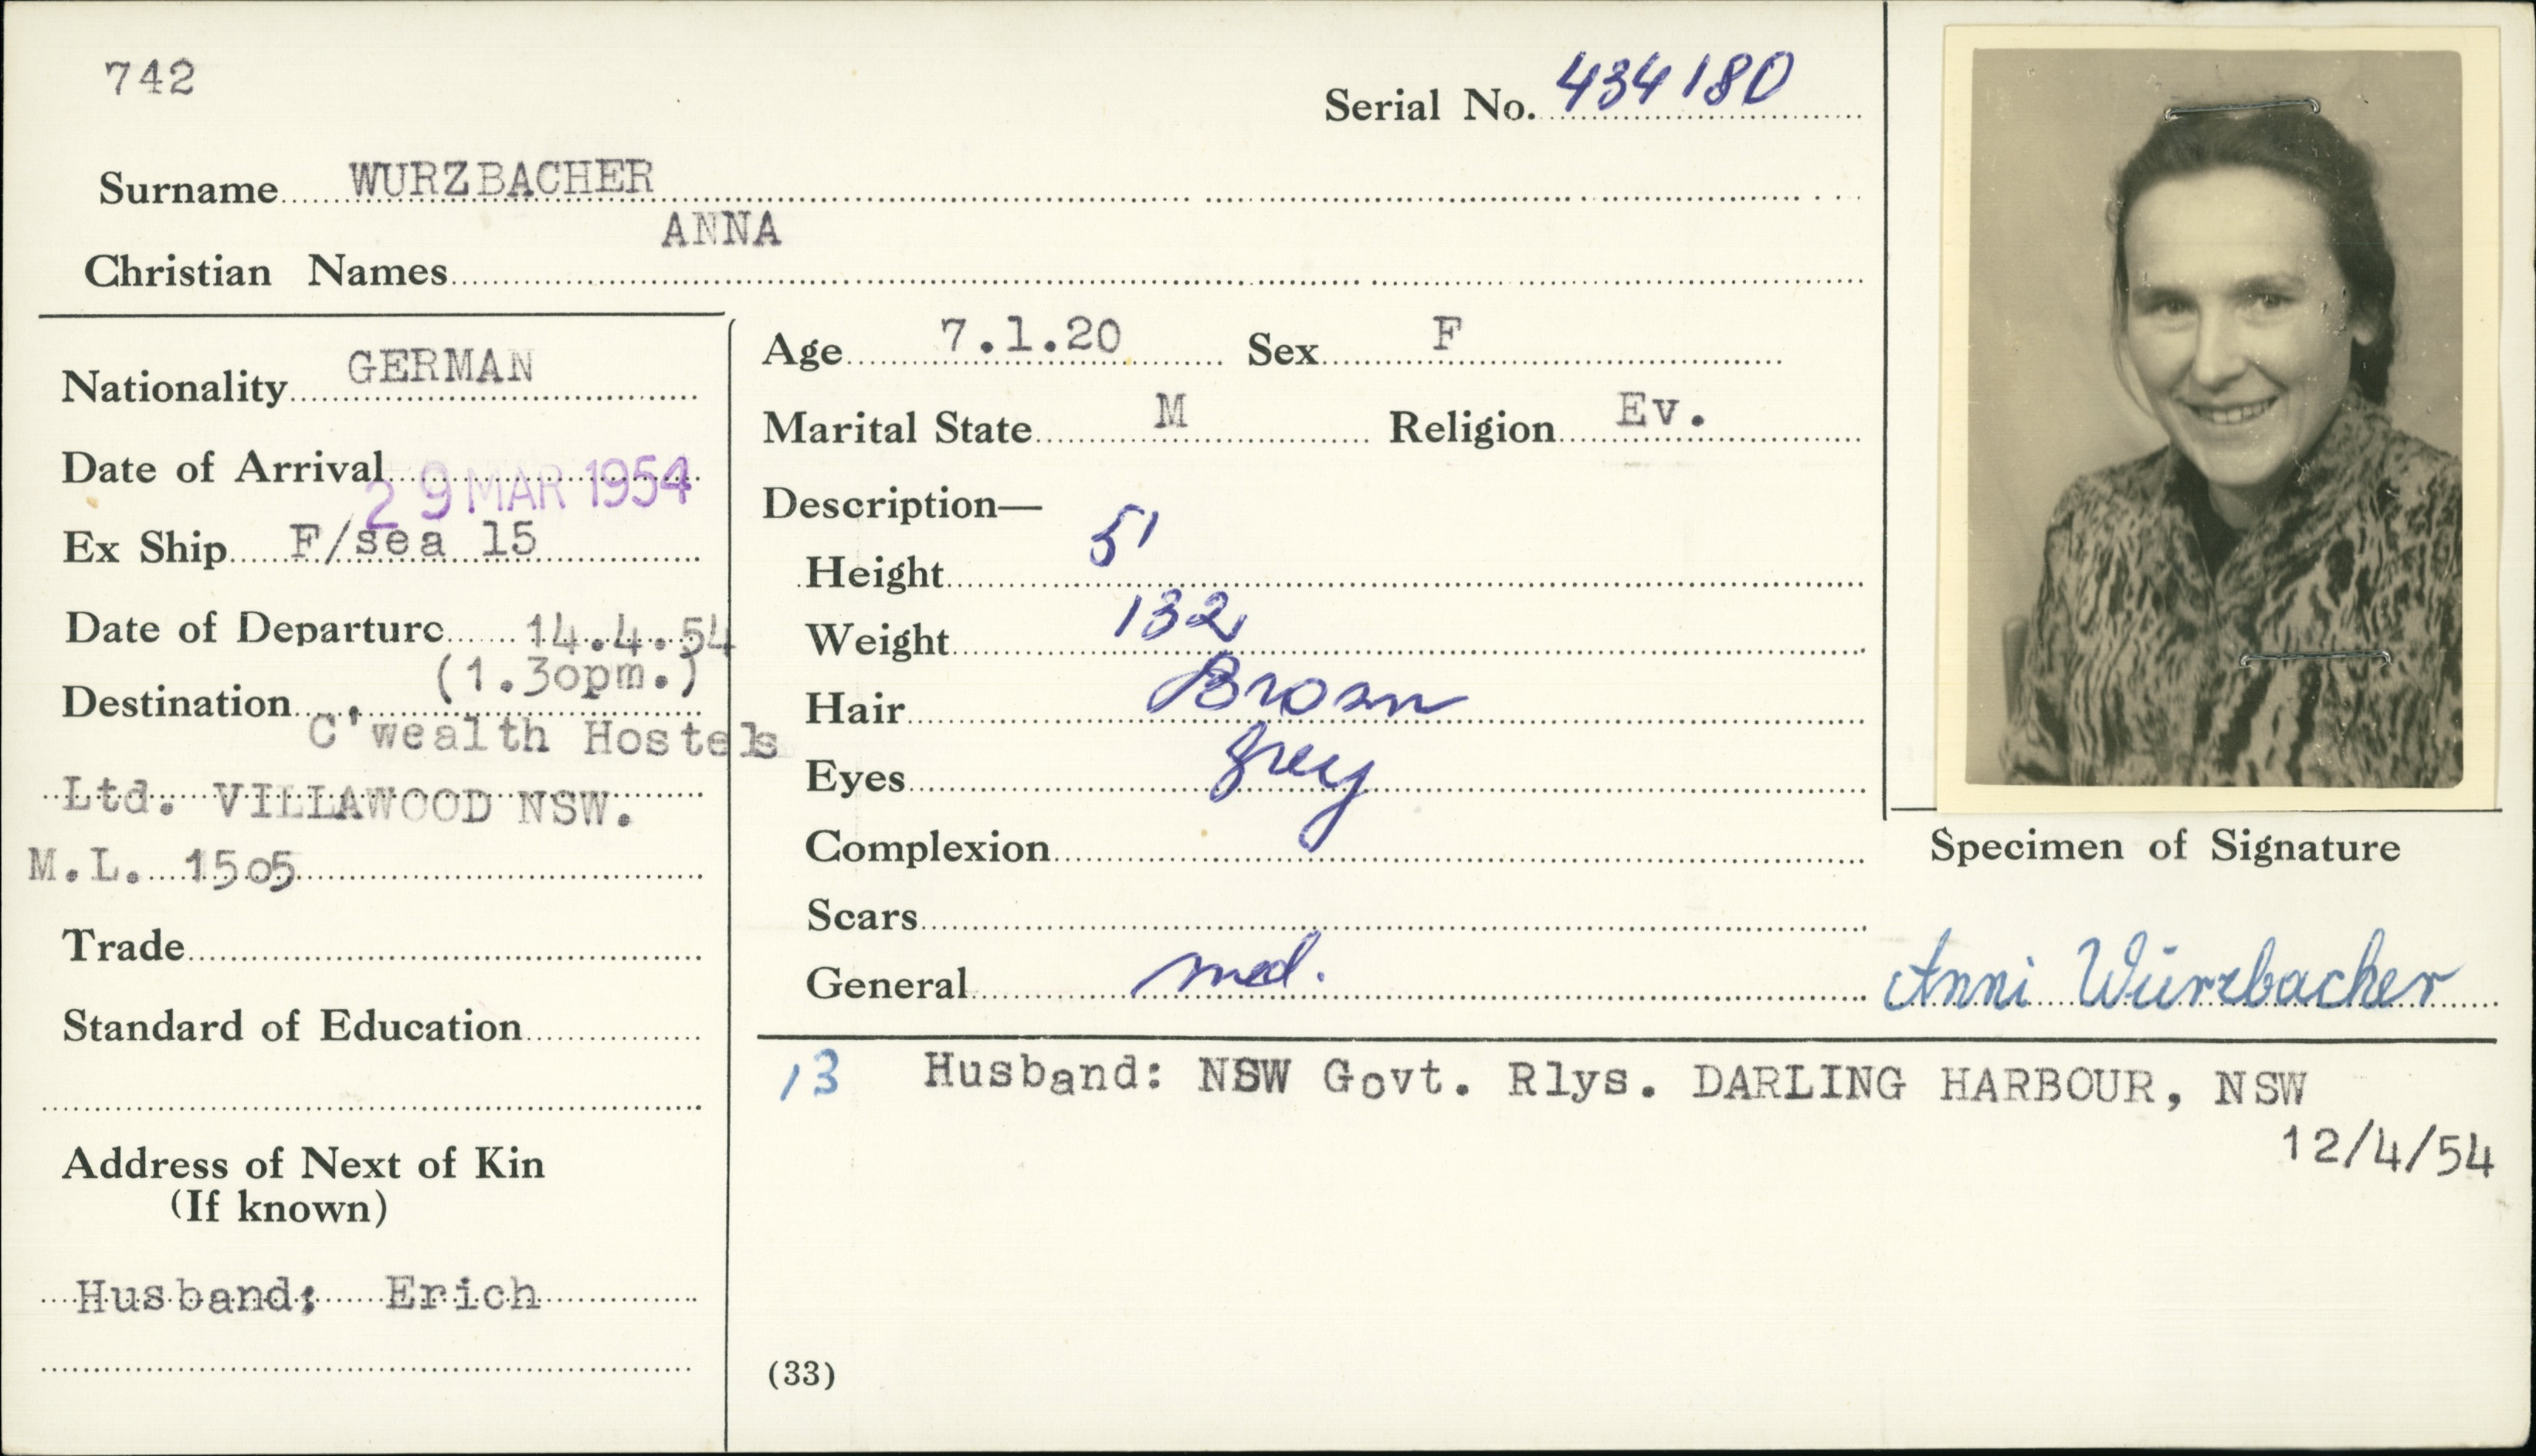 742
Serial No. 434180
Surname WURZBACHER
Christian Names ANNA
Nationality GERMAN
Date of Arrival 29 MAR 1954
Ex Ship F/sea 15
Date of Departure 14.4.54
(1.30pm.)
Destination
C'wealth Hostels
Ltd. VILLAWOOD NSW.
M.L. 1505
Trade
Standard of Education
Address of Next of Kin
(If known)
Husband: Erich
Age 7.1.20 Sex F
Marital State M Religion Ev.
Description—
Height 5'
Weight 132
Hair Brown
Eyes Grey
Complexion
Scars
General med.
Specimen of Signature
Anni Würzbacher
13 Husband: NSW Govt. Rlys. DARLING HARBOUR, NSW
12/4/54
(33)